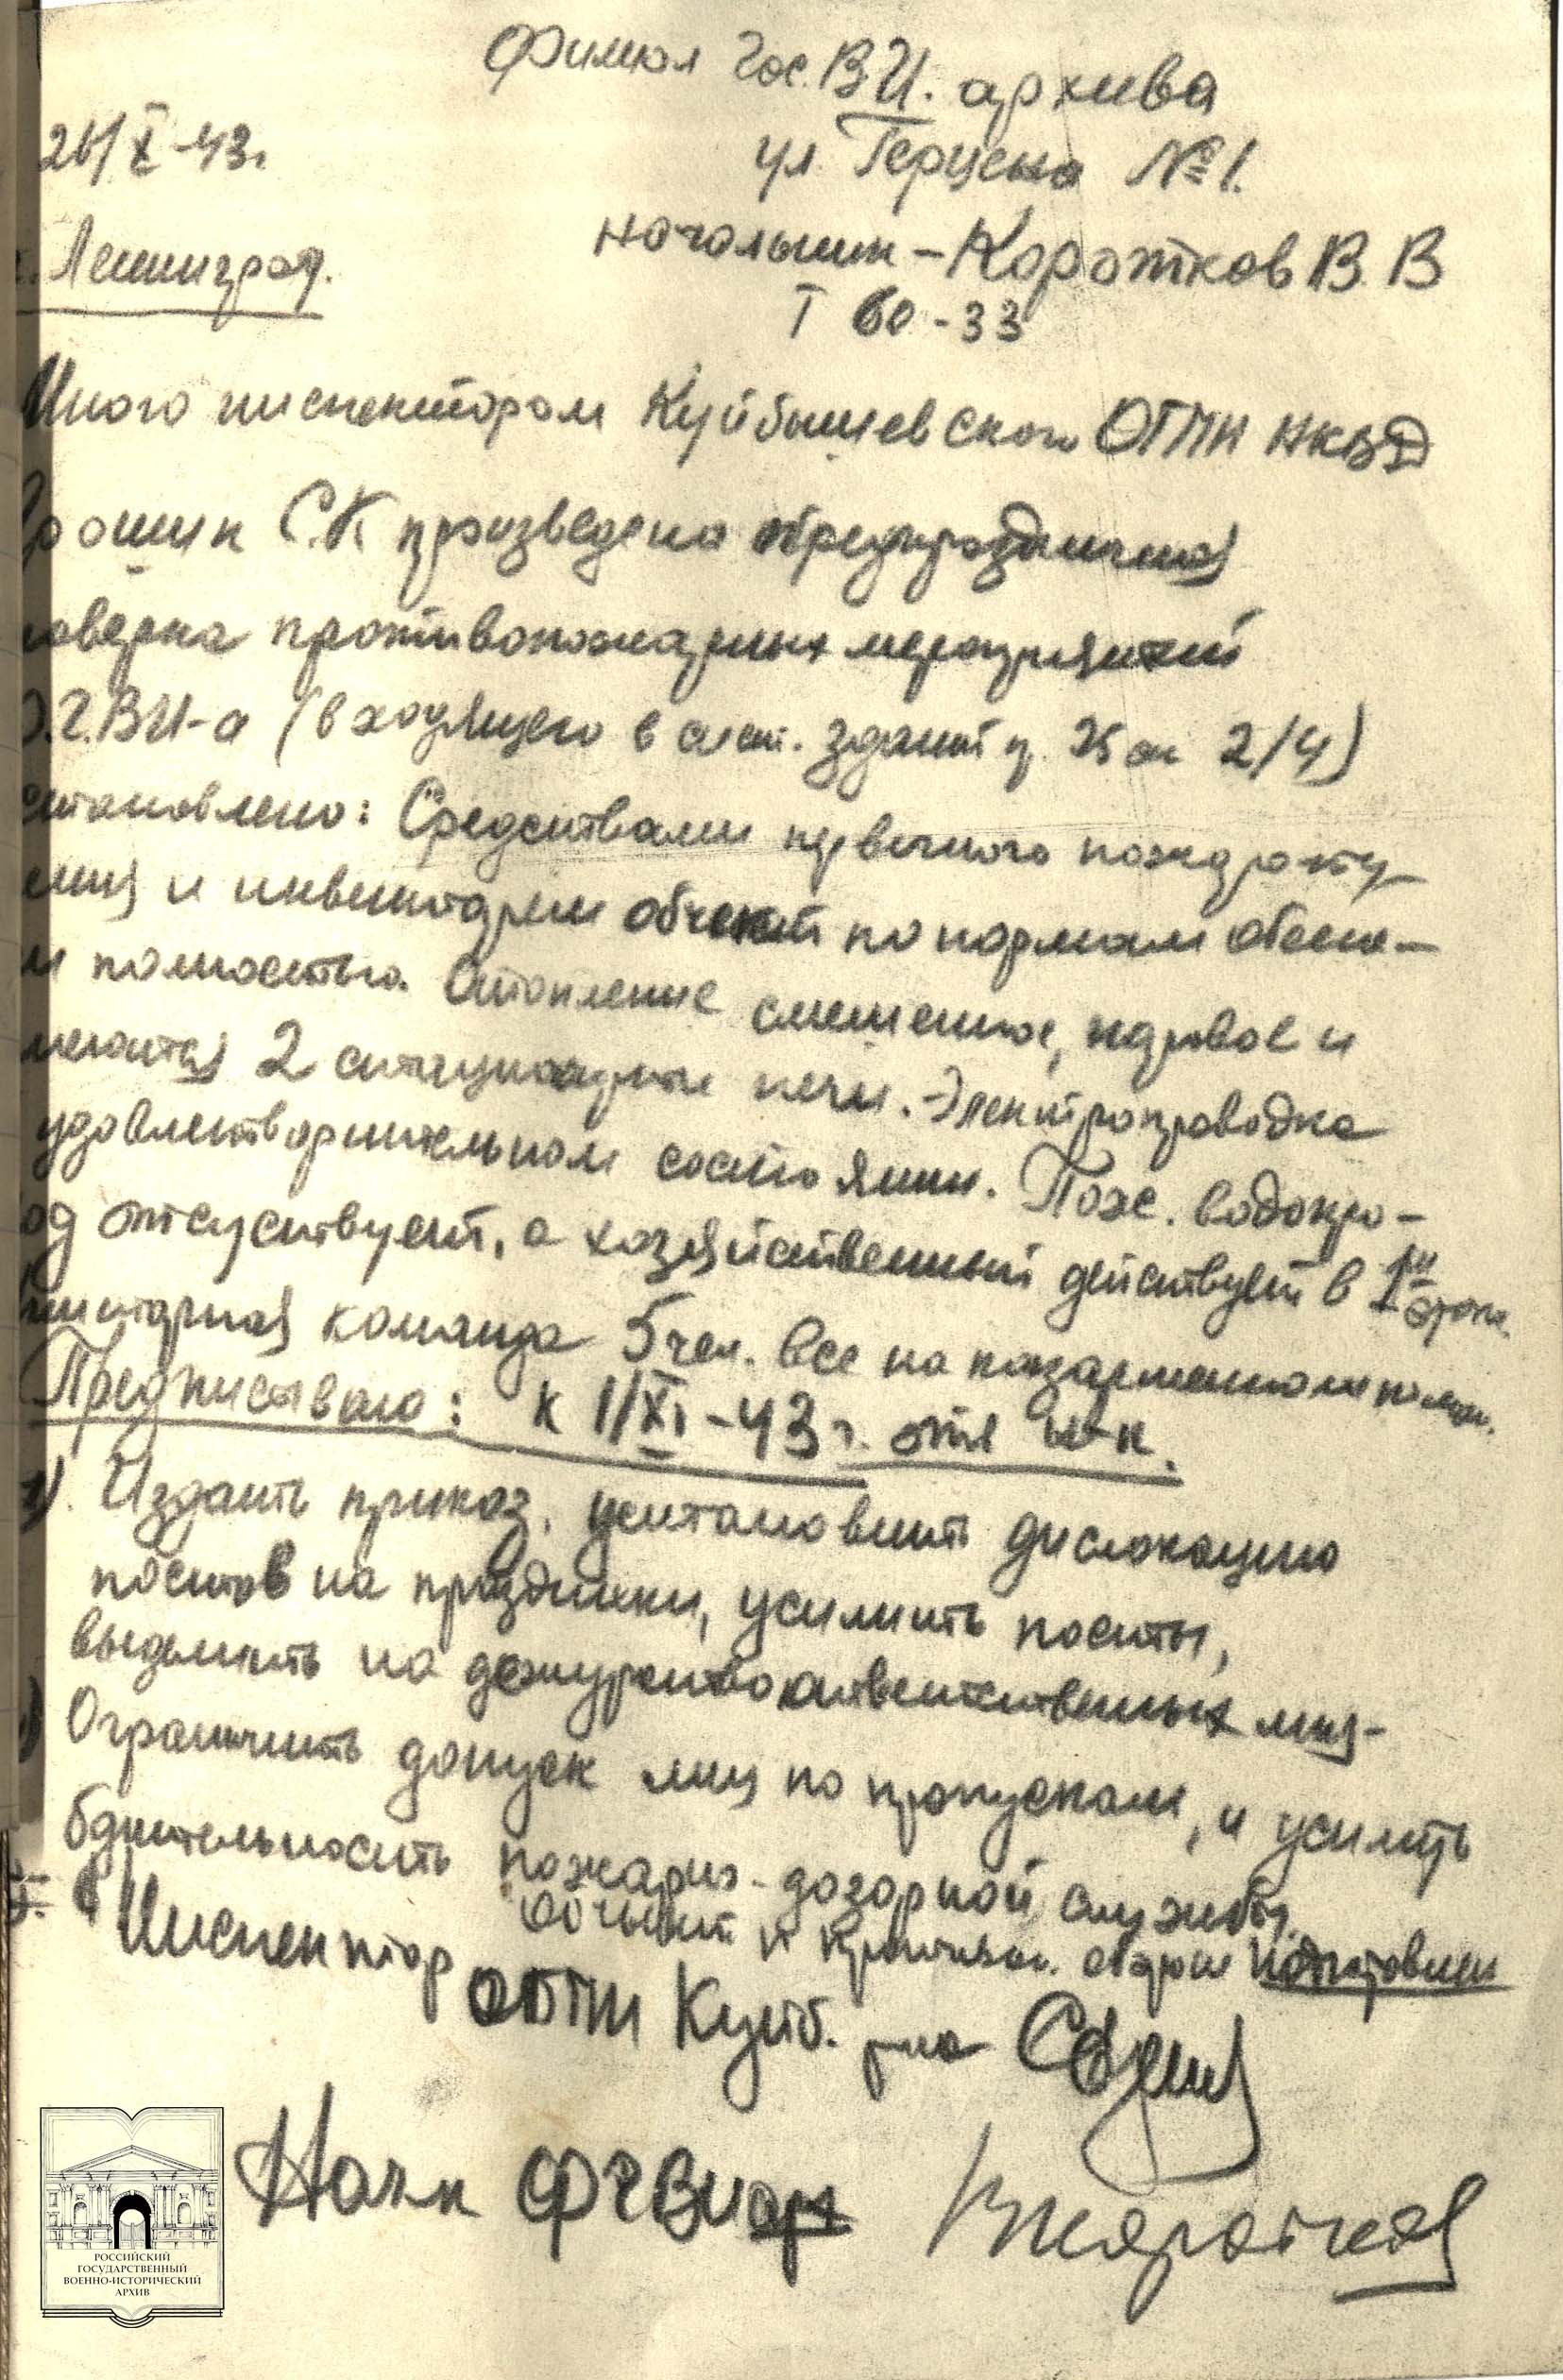 Филиал Гос. ВИ. архива
26/X-43г.
ул. Герцена №1.
г. Ленинград.
начальник - Коротков В. В
Т 60-33
Мною инспектором Куйбышевского ОГПН НКВД
С.К произведена предпраздничная
оверка противопожарных мероприятий
Ф.Г.ВИ-а (входящего в сист. зданий 2/4)
становлено: Средствами первичного пожароту
ения и инвентарем объект по нормам обеспе-
н полностью. Отопление смешенное, паровое и
меются 2 стационарные печи. Электропроводка
удовлетворительном состоянии. Пож. водопро-
од отсуствует, а хозяйственный действует в 1м этаже.
нитарная команда 5 чел. все на казарменном полож.
Предписываю: к 1/XI-43г.
1). Издать приказ, установить дислокацию
постов на праздники, усилить посты,
выделить на дежурство ответственных лиц-
Ограничить допуск лиц по пропускам, и усилить
бдительность пожарно-дозорной службы.
Объект к противоп. обороне подготовлен
Инспектор ОГПН Куйб. р-на
Нач-к ФГВИар
ВКоротков
РОССИЙСКИЙ
ГОСУДАРСТВЕННЫЙ
ВОЕННО-ИСТОРИЧЕСКИЙ
АРХИВ